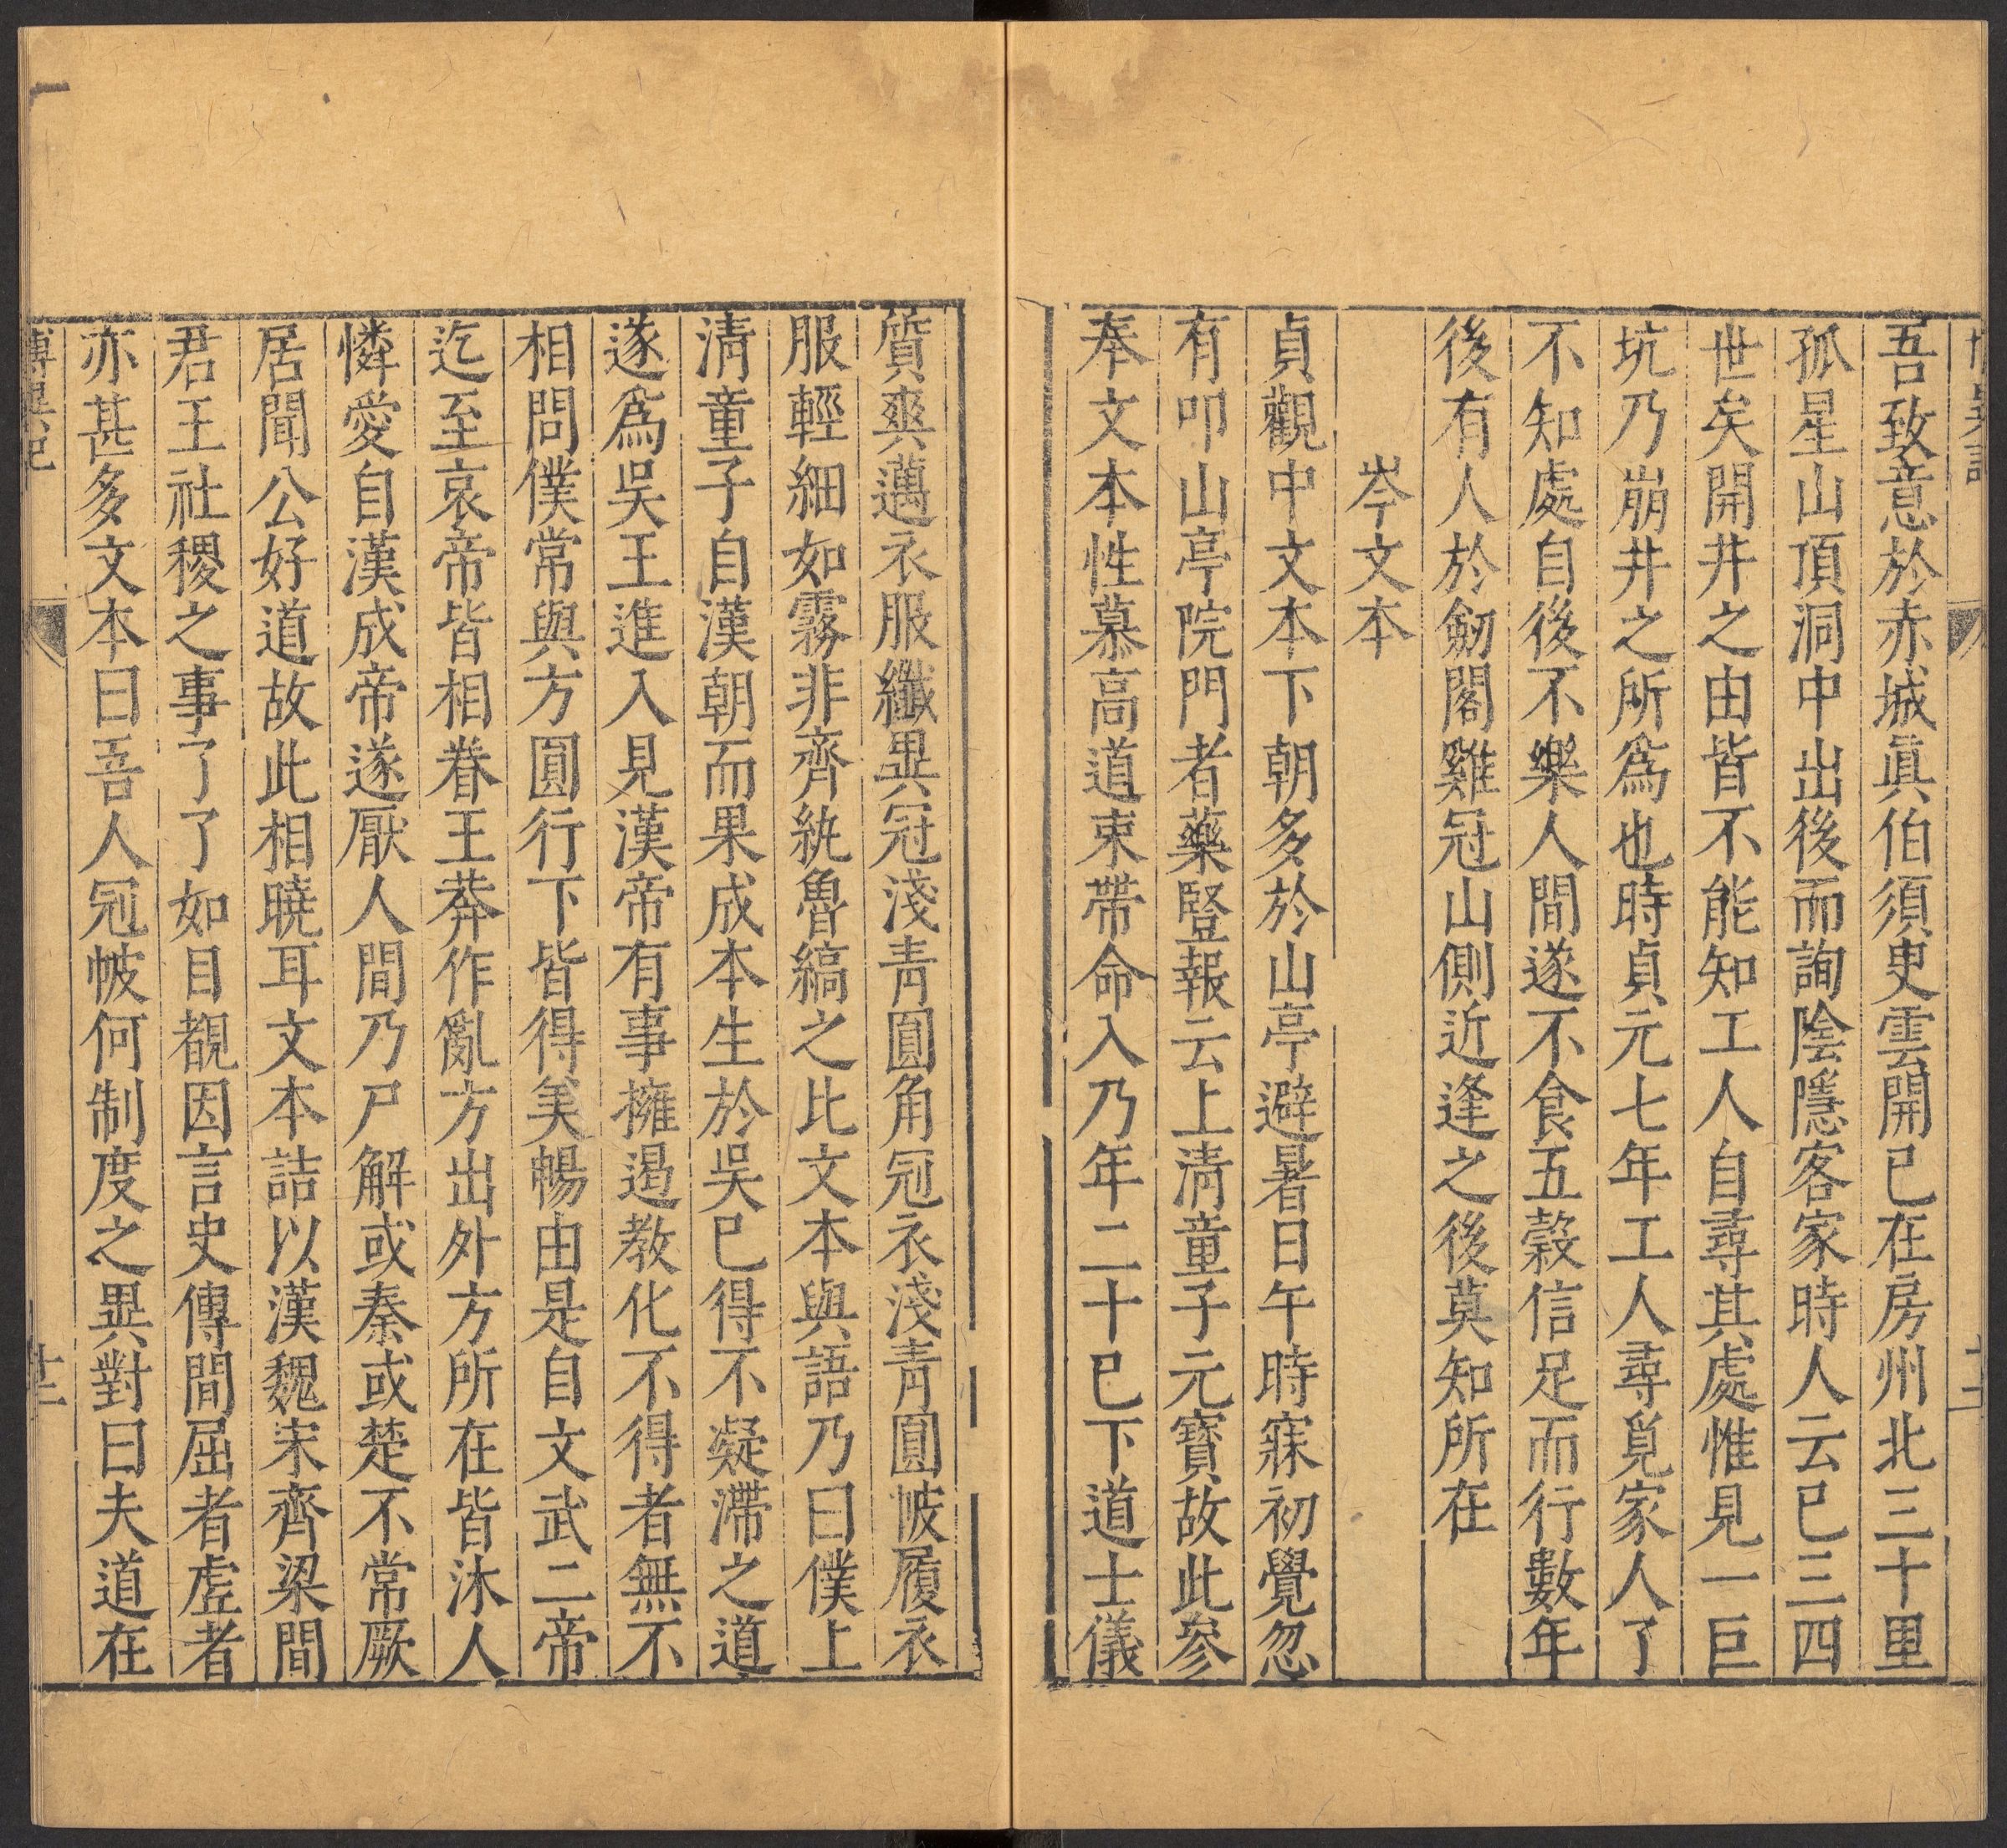 吾致意於赤城眞伯須臾雲開已在房州北三十里
孤星山頂洞中出後而詢陰隱客家時人云已三四
世矣開井之由皆不能知工人自尋其處惟見一巨
坑乃崩井之所爲也時貞元七年工人尋覓家人了
不知處自後不樂人間遂不食五穀信足而行數年
後有人於劒閣雞冠山側近逢之後莫知所在
岑文本
貞觀中文本下朝多於山亭避暑日午時寐初覺忽
有叩山亭院門者藥豎報云上淸童子元寶故此參
奉文本性慕高道束帶命入乃年二十已下道士儀
質爽邁衣服纖異冠淺靑圓角冠衣淺靑圓帔履衣
服輕細如霧非齊紈魯縞之比文本與語乃曰僕上
淸童子自漢朝而果成本生於吳已得不凝滯之道
遂爲吳王進入見漢帝有事擁遏敎化不得者無不
相問僕常與方圓行下皆得美暢由是自文武二帝
迄至哀帝皆相眷王莽作亂方出外方所在皆沐人
憐愛自漢成帝遂厭人間乃尸解或秦或楚不常厥
居聞公好道故此相曉耳文本詰以漢魏宋齊梁間
君王社稷之事了了如目覩因言史傳間屈者虛者
亦甚多文本曰吾人冠帔何制度之異對曰夫道在
博異記
十二